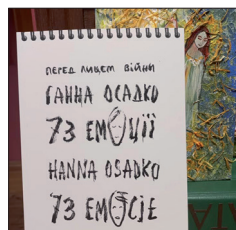 ПЕРЕД ЛИЦЕМ ВІЙНИ
ГАННА ОСАДКО
73 ЕМОЦІЇ
HANNA OSADKO
73 EMOCJE